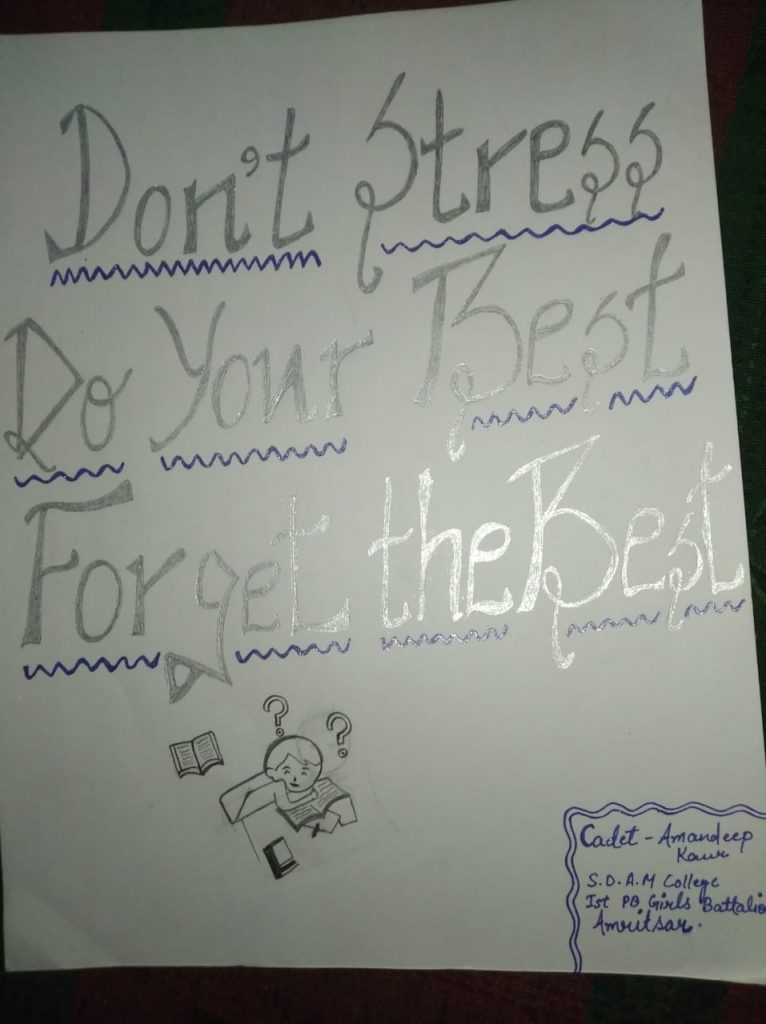 Don't Stress
Do Your Best
Forget the Best
? ?
Cadet - Amandeep
Kaur
S.D.A.M College
Ist PB Girls Battalio
Amritsar.